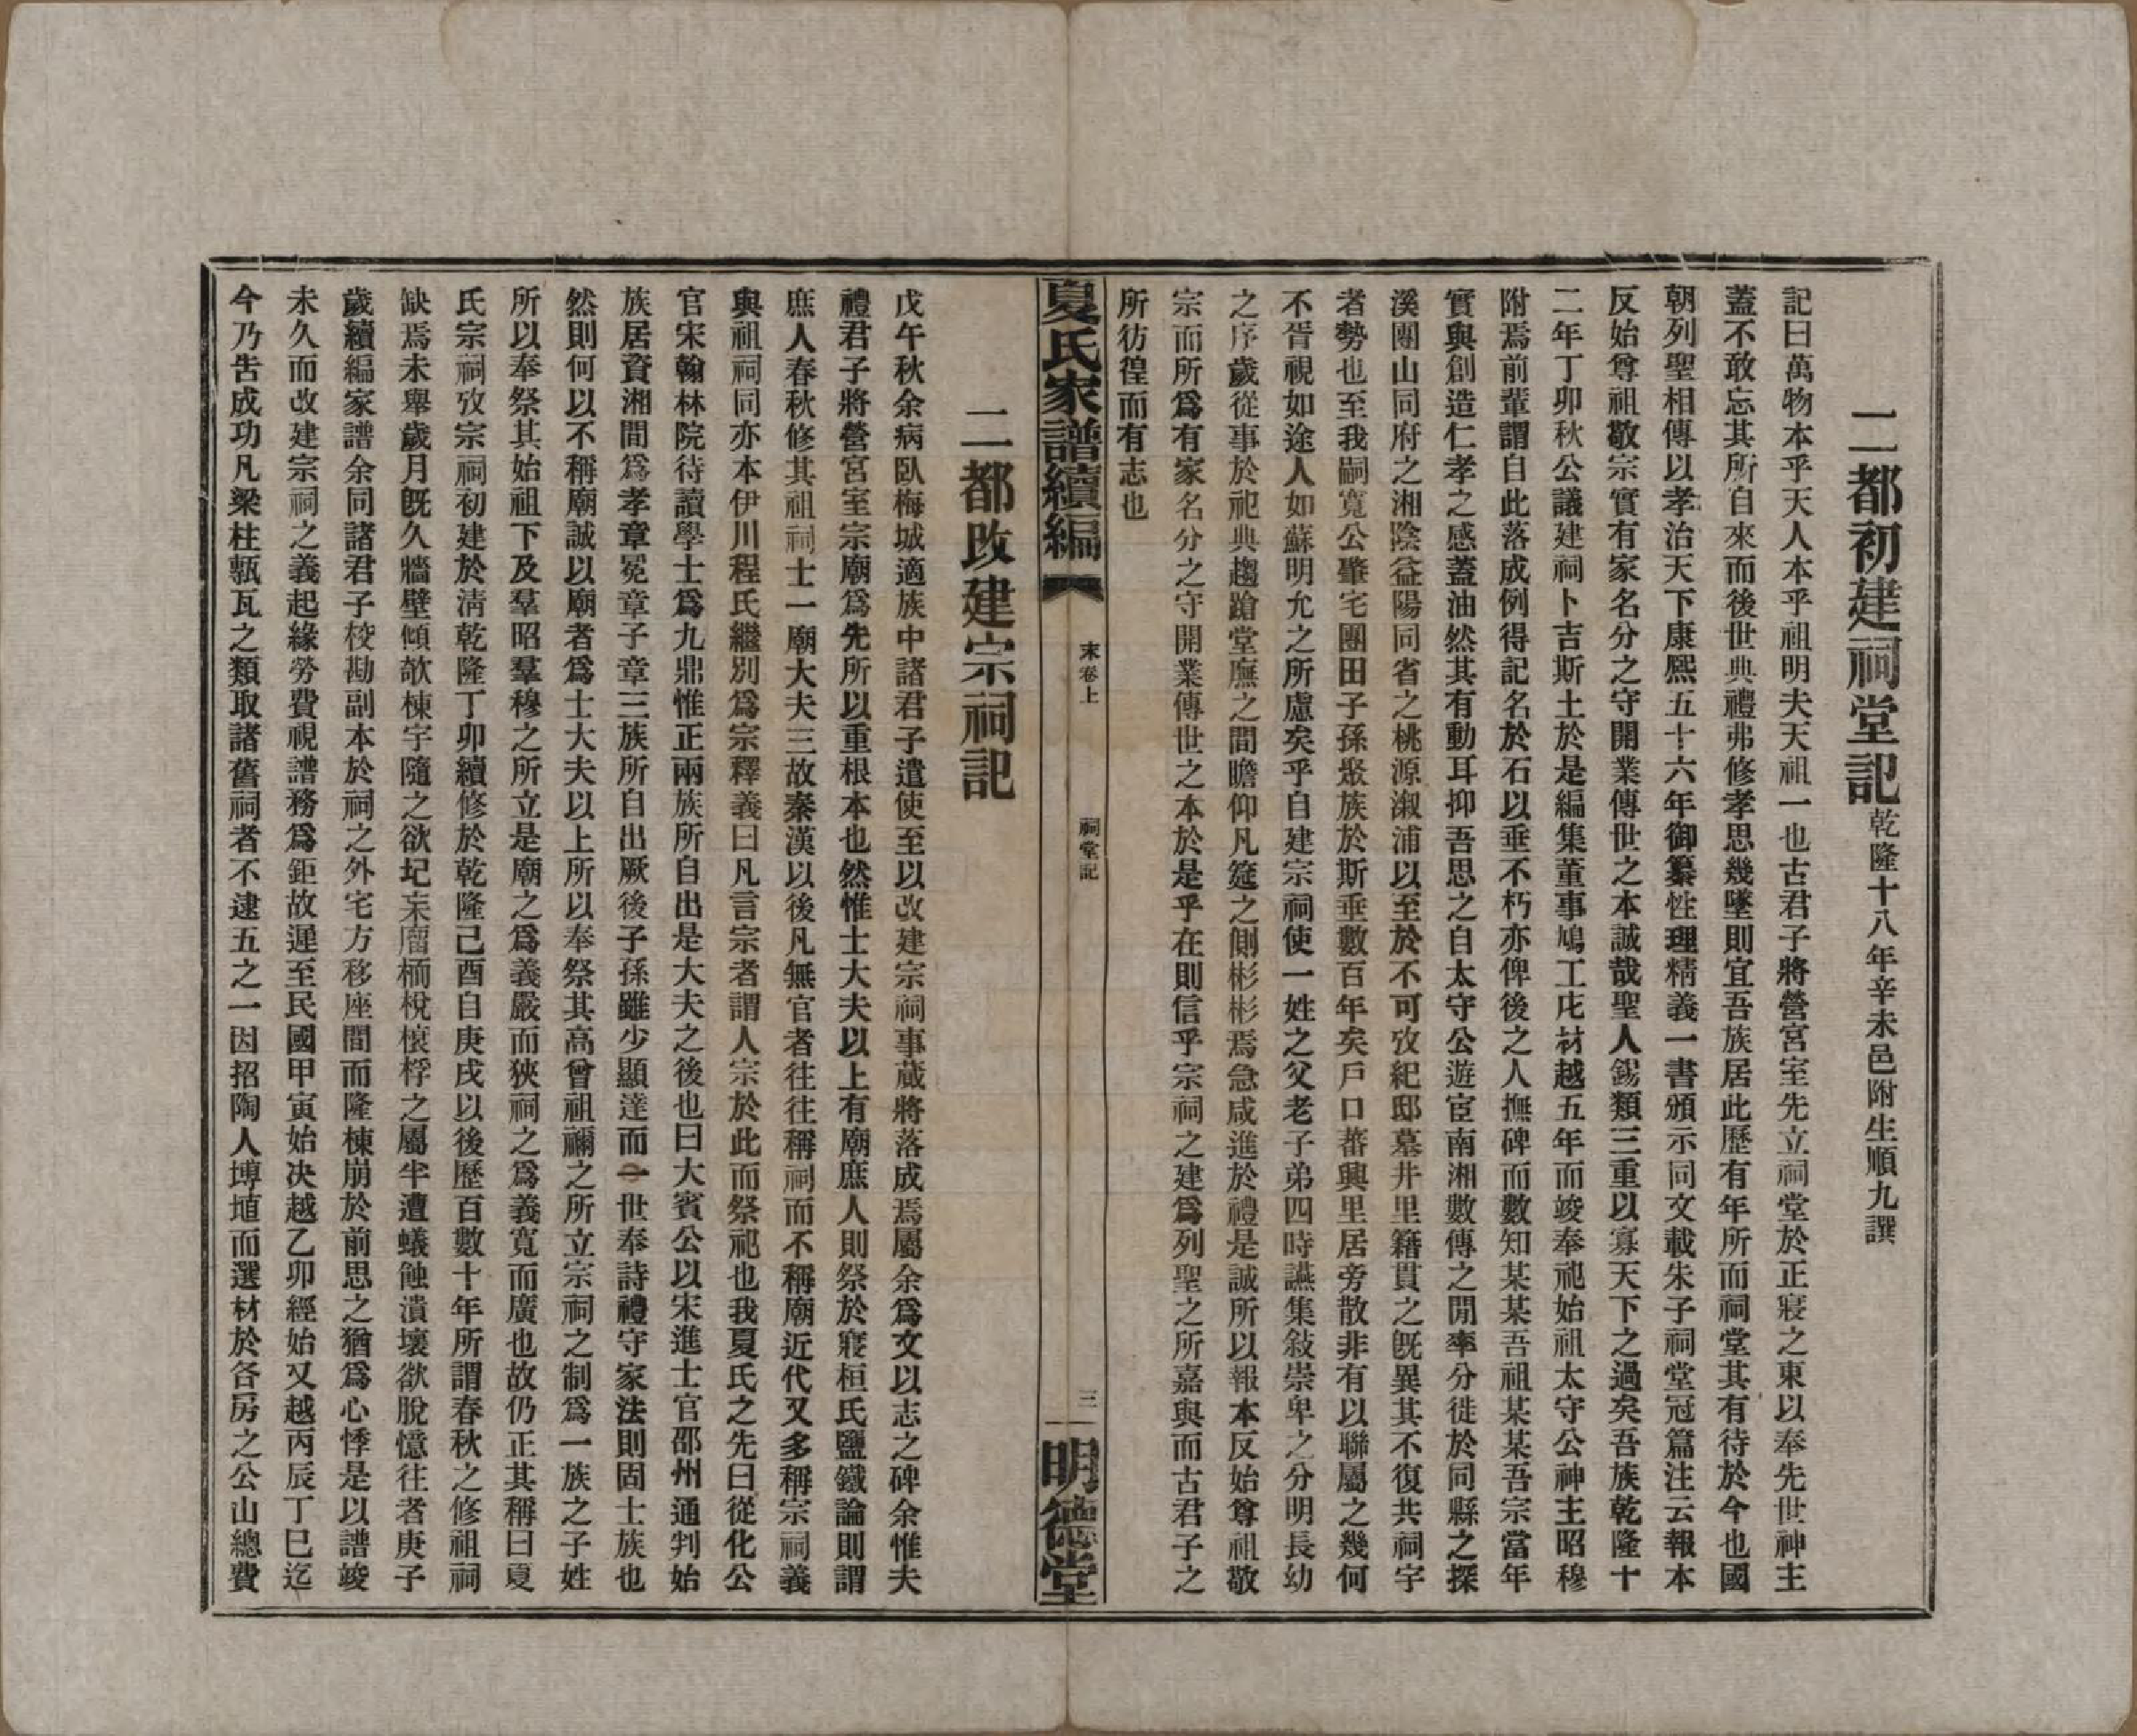 二都初建祠堂記乾隆十八年辛未邑附生順九譔
記曰萬物本乎天人本乎祖明夫天祖一也古君子將營宮室先立祠堂於正寢之東以奉先世神主
蓋不敢忘其所自來而後世典禮弗修孝思幾墜則宜吾族居此歷有年所而祠堂其有待於今也國
朝列聖相傳以孝治天下康熙五十六年御纂性理精義一書頒示同文載朱子祠堂冠篇注云報本
反始尊祖敬宗實有家名分之守開業傳世之本誠哉聖人錫類三重以寡天下之過矣吾族乾隆十
二年丁卯秋公議建祠卜吉斯土於是編集董事鳩工庀材越五年而竣奉祀始祖太守公神主昭穆
附焉前輩謂自此落成例得記名於石以垂不朽亦俾後之人撫碑而數知某某吾祖某某吾宗當年
實與創造仁孝之感蓋油然其有動耳抑吾思之自太守公遊宦南湘數傳之閒率分徙於同縣之探
溪團山同府之湘陰益陽同省之桃源溆浦以至於不可攷紀邸墓井里籍貫之旣異其不復共祠宇
者勢也至我嗣寬公肇宅團田子孫聚族於斯垂數百年矣戶口蕃興里居旁散非有以聯屬之幾何
不胥視如途人如蘇明允之所慮矣乎自建宗祠使一姓之父老子弟四時讌集敍崇卑之分明長幼
之序歲從事於祀典趨蹌堂廡之間瞻仰凡筵之側彬彬焉急咸進於禮是誠所以報本反始尊祖敬
宗而所爲有家名分之守開業傳世之本於是乎在則信乎宗祠之建爲列聖之所嘉與而古君子之
所彷徨而有志也
夏氏家譜續編
末卷上
祠堂記
三
明德堂
二都改建宗祠記
戊午秋余病臥梅城適族中諸君子遣使至以改建宗祠事蕆將落成焉屬余爲文以志之碑余惟夫
禮君子將營宮室宗廟爲先所以重根本也然惟士大夫以上有廟庶人則祭於寢桓氏鹽鐵論則謂
庶人春秋修其祖祠士一廟大夫三故秦漢以後凡無官者往往稱祠而不稱廟近代又多稱宗祠義
與祖祠同亦本伊川程氏繼別爲宗釋義曰凡言宗者謂人宗於此而祭祀也我夏氏之先曰從化公
官宋翰林院待讀學士爲九鼎惟正兩族所自出是大夫之後也曰大賓公以宋進士官邵州通判始
族居資湘間爲孝章冕章子章三族所自出厥後子孫雖少顯達而一世奉詩禮守家法則固士族也
然則何以不稱廟誠以廟者爲士大夫以上所以奉祭其高曾祖禰之所立宗祠之制爲一族之子姓
所以奉祭其始祖下及羣昭羣穆之所立是廟之爲義嚴而狹祠之爲義寬而廣也故仍正其稱曰夏
氏宗祠攷宗祠初建於淸乾隆丁卯續修於乾隆己酉自庚戌以後歷百數十年所謂春秋之修祖祠
缺焉未舉歲月旣久牆壁傾欹棟宇隨之欲圮杗廇栭梲榱桴之屬半遭蟻蝕潰壞欲脫憶往者庚子
歲續編家譜余同諸君子校勘副本於祠之外宅方移座間而隆棟崩於前思之猶爲心悸是以譜竣
未久而改建宗祠之義起緣勞費視譜務爲鉅故遲至民國甲寅始决越乙卯經始又越丙辰丁巳迄
今乃吿成功凡梁柱甎瓦之類取諸舊祠者不逮五之一因招陶人塼埴而選材於各房之公山總費